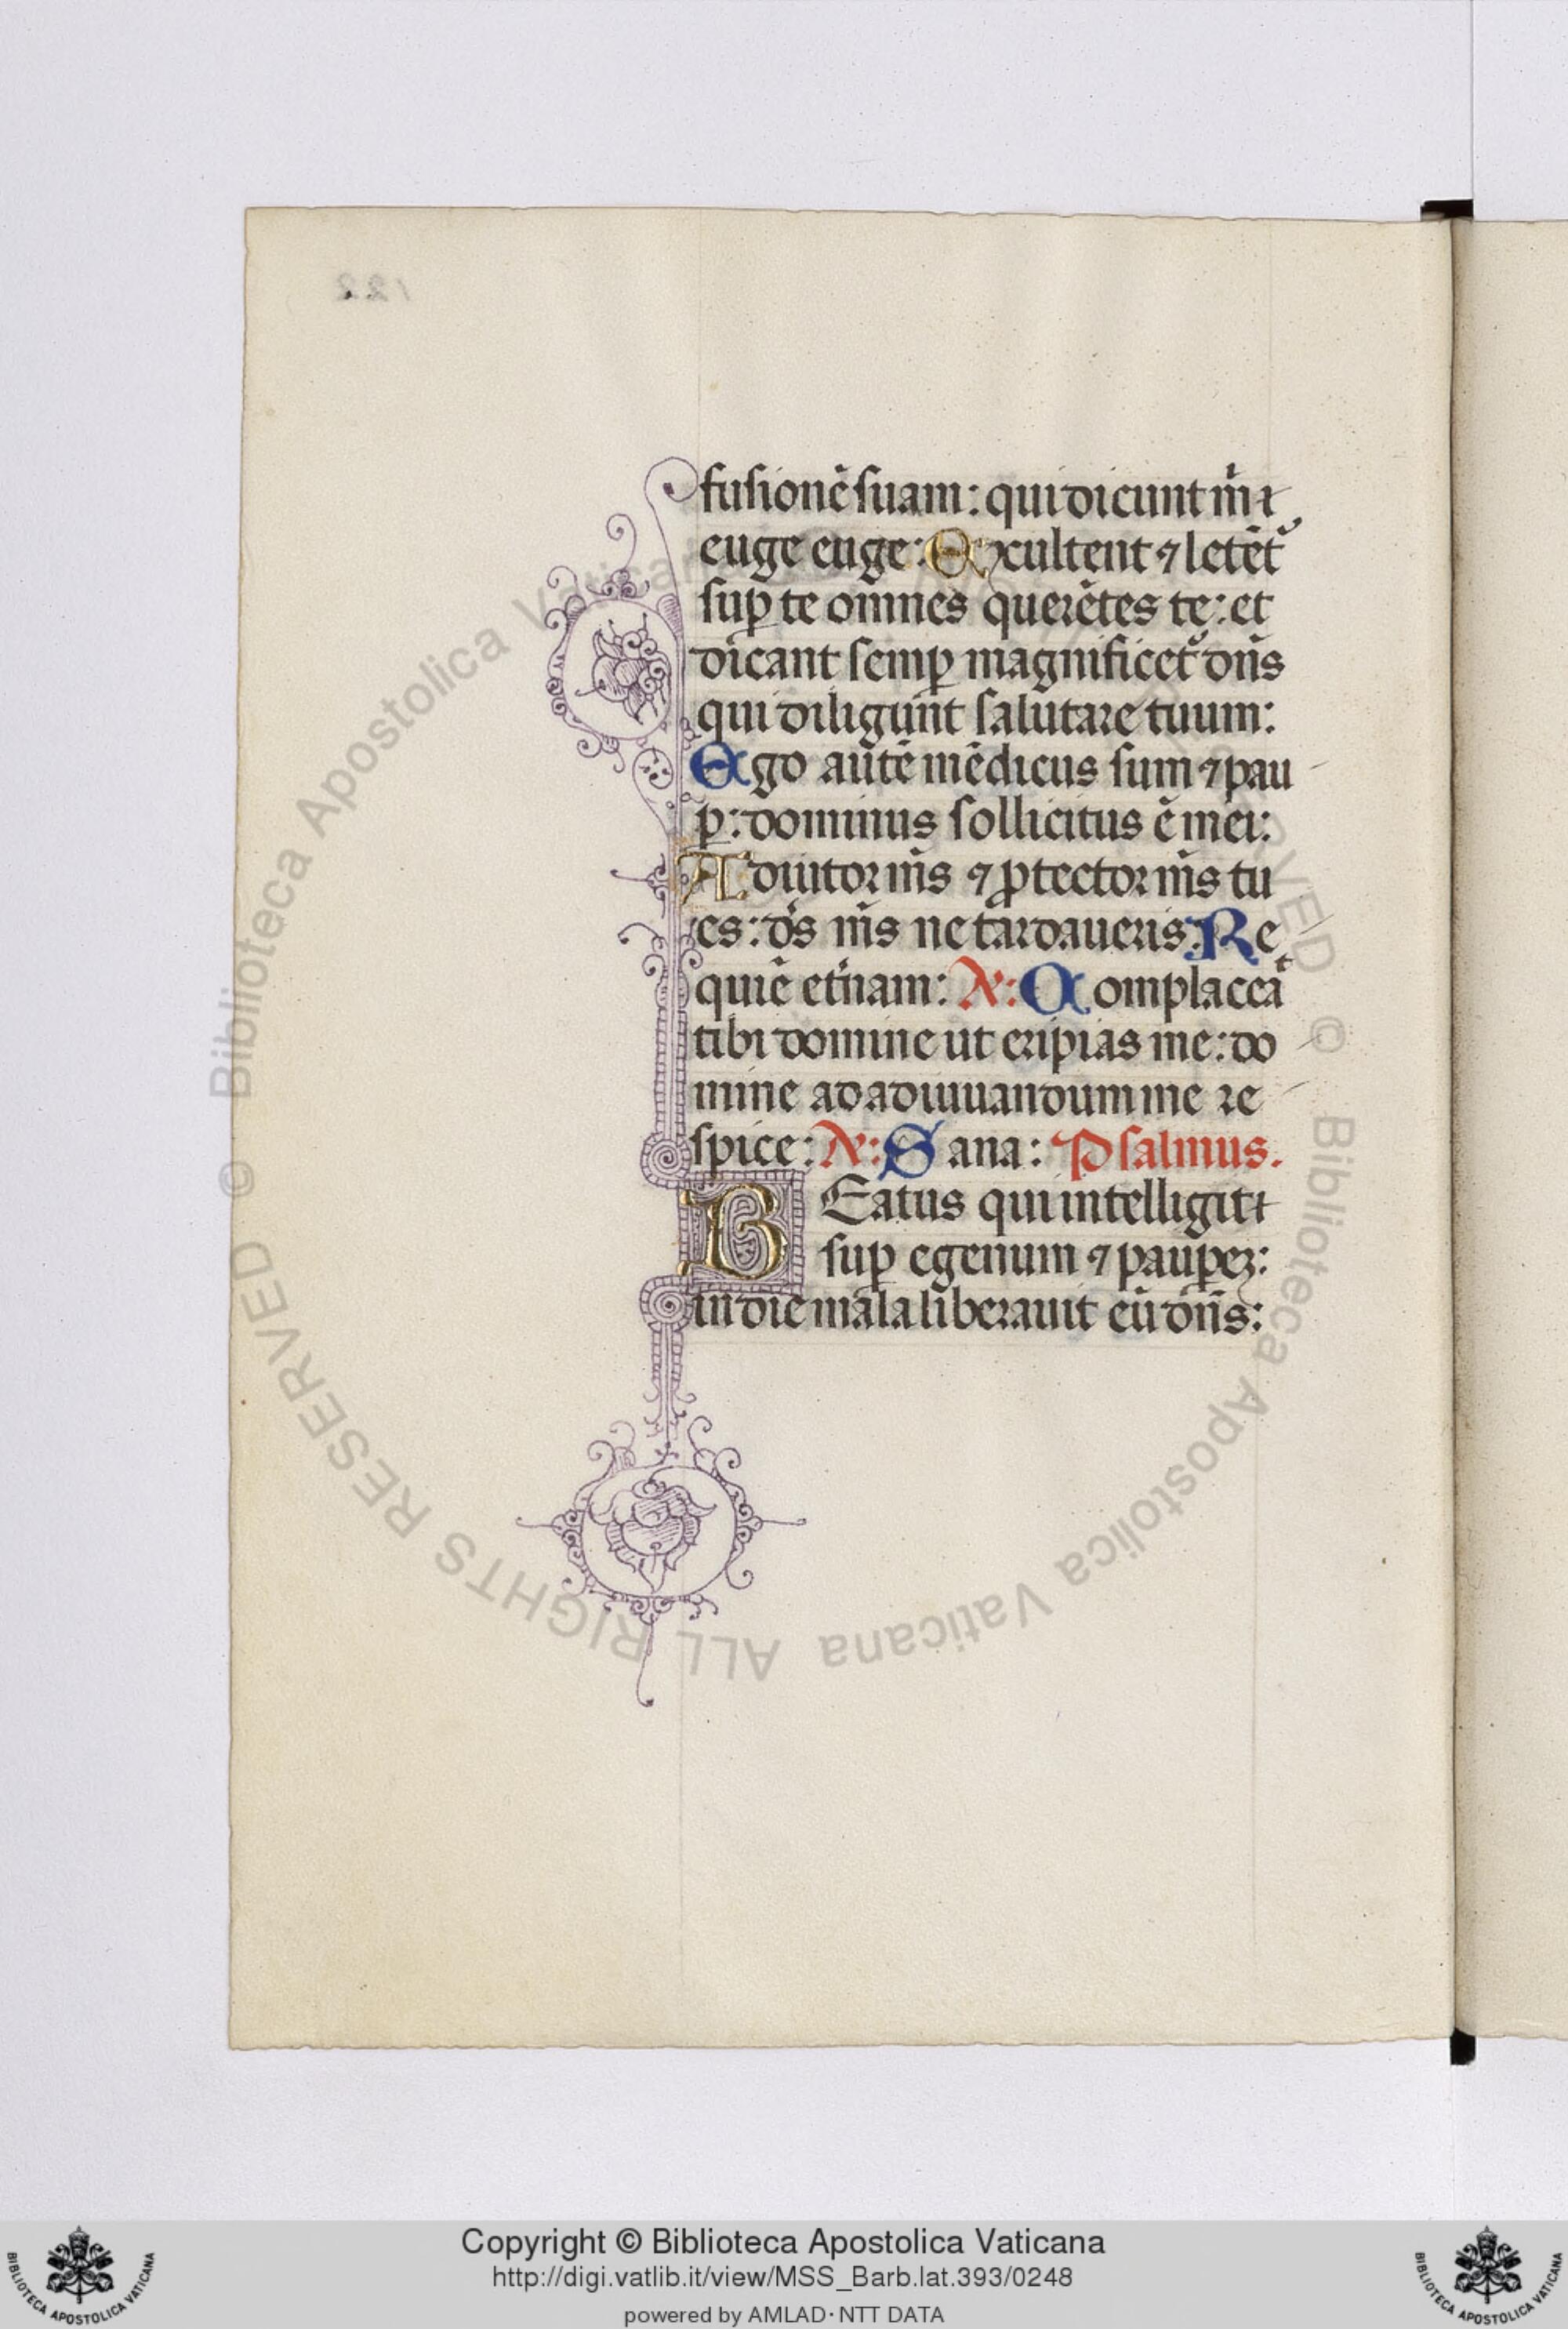 fusionē suam: qui dicunt m̄
euge euge: Excultent ⁊ letēt᷑
suꝑ te omnes querētes te: et
dicant semꝑ magnificet᷑ dn̄s
qui diligunt salutare tuum:
Ego autē mēdicus sum ⁊ pau
ꝑ: dominus sollicitus ē mei:
Adiutor m̄s ⁊ ꝓtector m̄s tu
es: ds̄ m̄s ne tardaueris: Re
quiē et̄nam: A: Complaceat
tibi domine ut eripias me: do
mine ad adiuuandum me re
spice: A: Sana: Psalmus.
BEatus qui intelligit
suꝑ egenum ⁊ pauꝑeꝫ:
in die mala liberauit eū dn̄s:
122
© Biblioteca Apostolica Vaticana
© Biblioteca Apostolica Vaticana ALL RIGHTS RESERVED
Copyright © Biblioteca Apostolica Vaticana
http://digi.vatlib.it/view/MSS_Barb.lat.393/0248
powered by AMLAD·NTT DATA
BIBLIOTECA APOSTOLICA VATICANA
BIBLIOTECA APOSTOLICA VATICANA